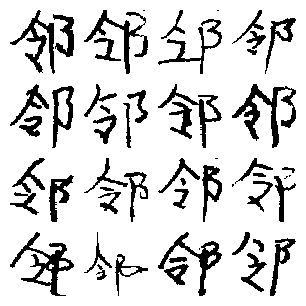 邻邻邻邻
邻邻邻邻
邻邻邻邻
邻邻邻邻